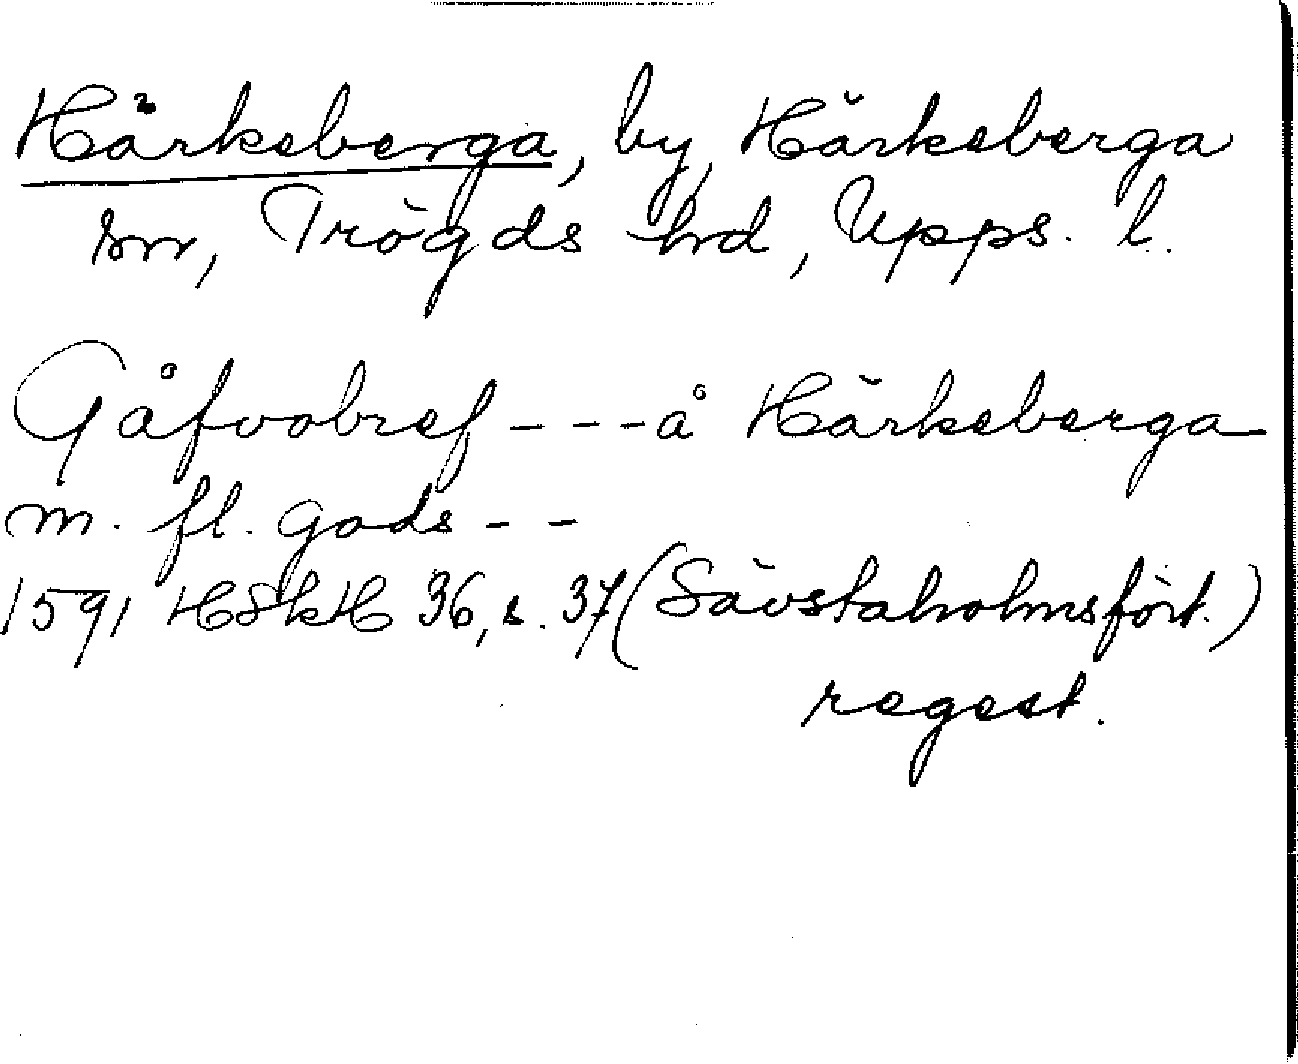 Härkeberga, by, Härkeberga
sn, Trögds hd, Upps. l.
Gåfvobref - - - å Härkeberga
m. fl. gods - -
1591 HSkH 36, s. 37 (Sävstaholmsfört.)
regest.